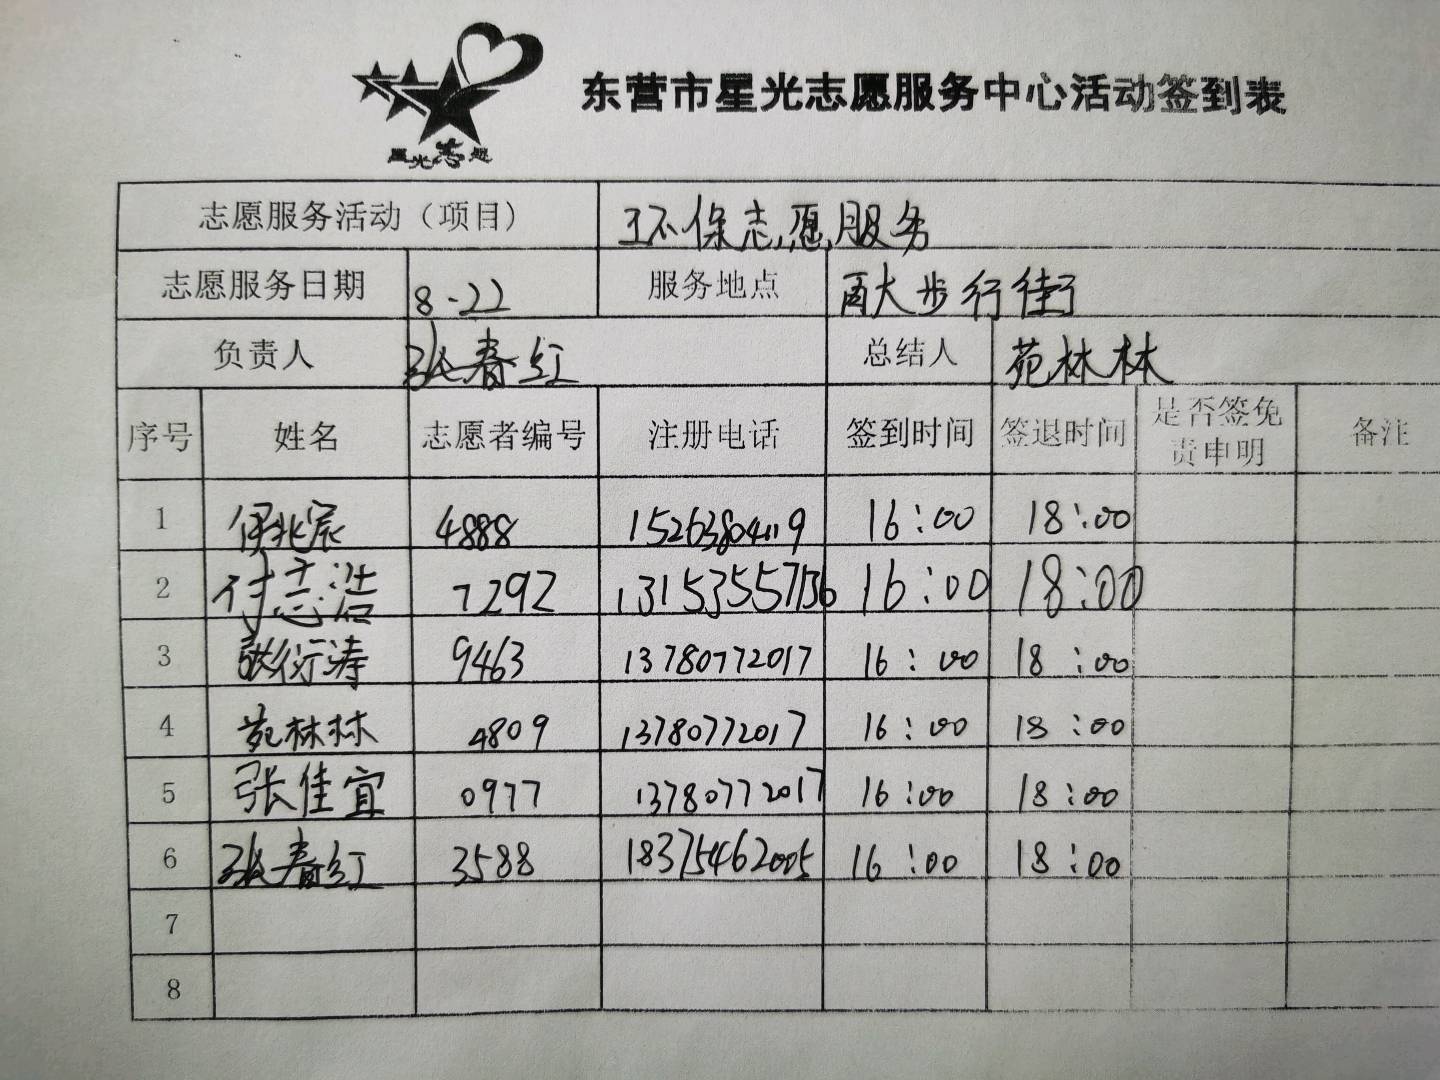 星光志愿
东营市星光志愿服务中心活动签到表
志愿服务活动（项目） 环保志愿服务
志愿服务日期 8-22 服务地点 大步行街
负责人 张春红 总结人 苑林林
序号 姓名 志愿者编号 注册电话 签到时间 签退时间 是否签免责申明 备注
1 4888 16:00 18:00
2 付志浩 7292 13153557136 16:00 18:00
3 张衍涛 9463 13780772017 16:00 18:00
4 苑林林 4809 13780772017 16:00 18:00
5 张佳宜 0977 13780772017 16:00 18:00
6 张春红 3588 18375462005 16:00 18:00
7
8